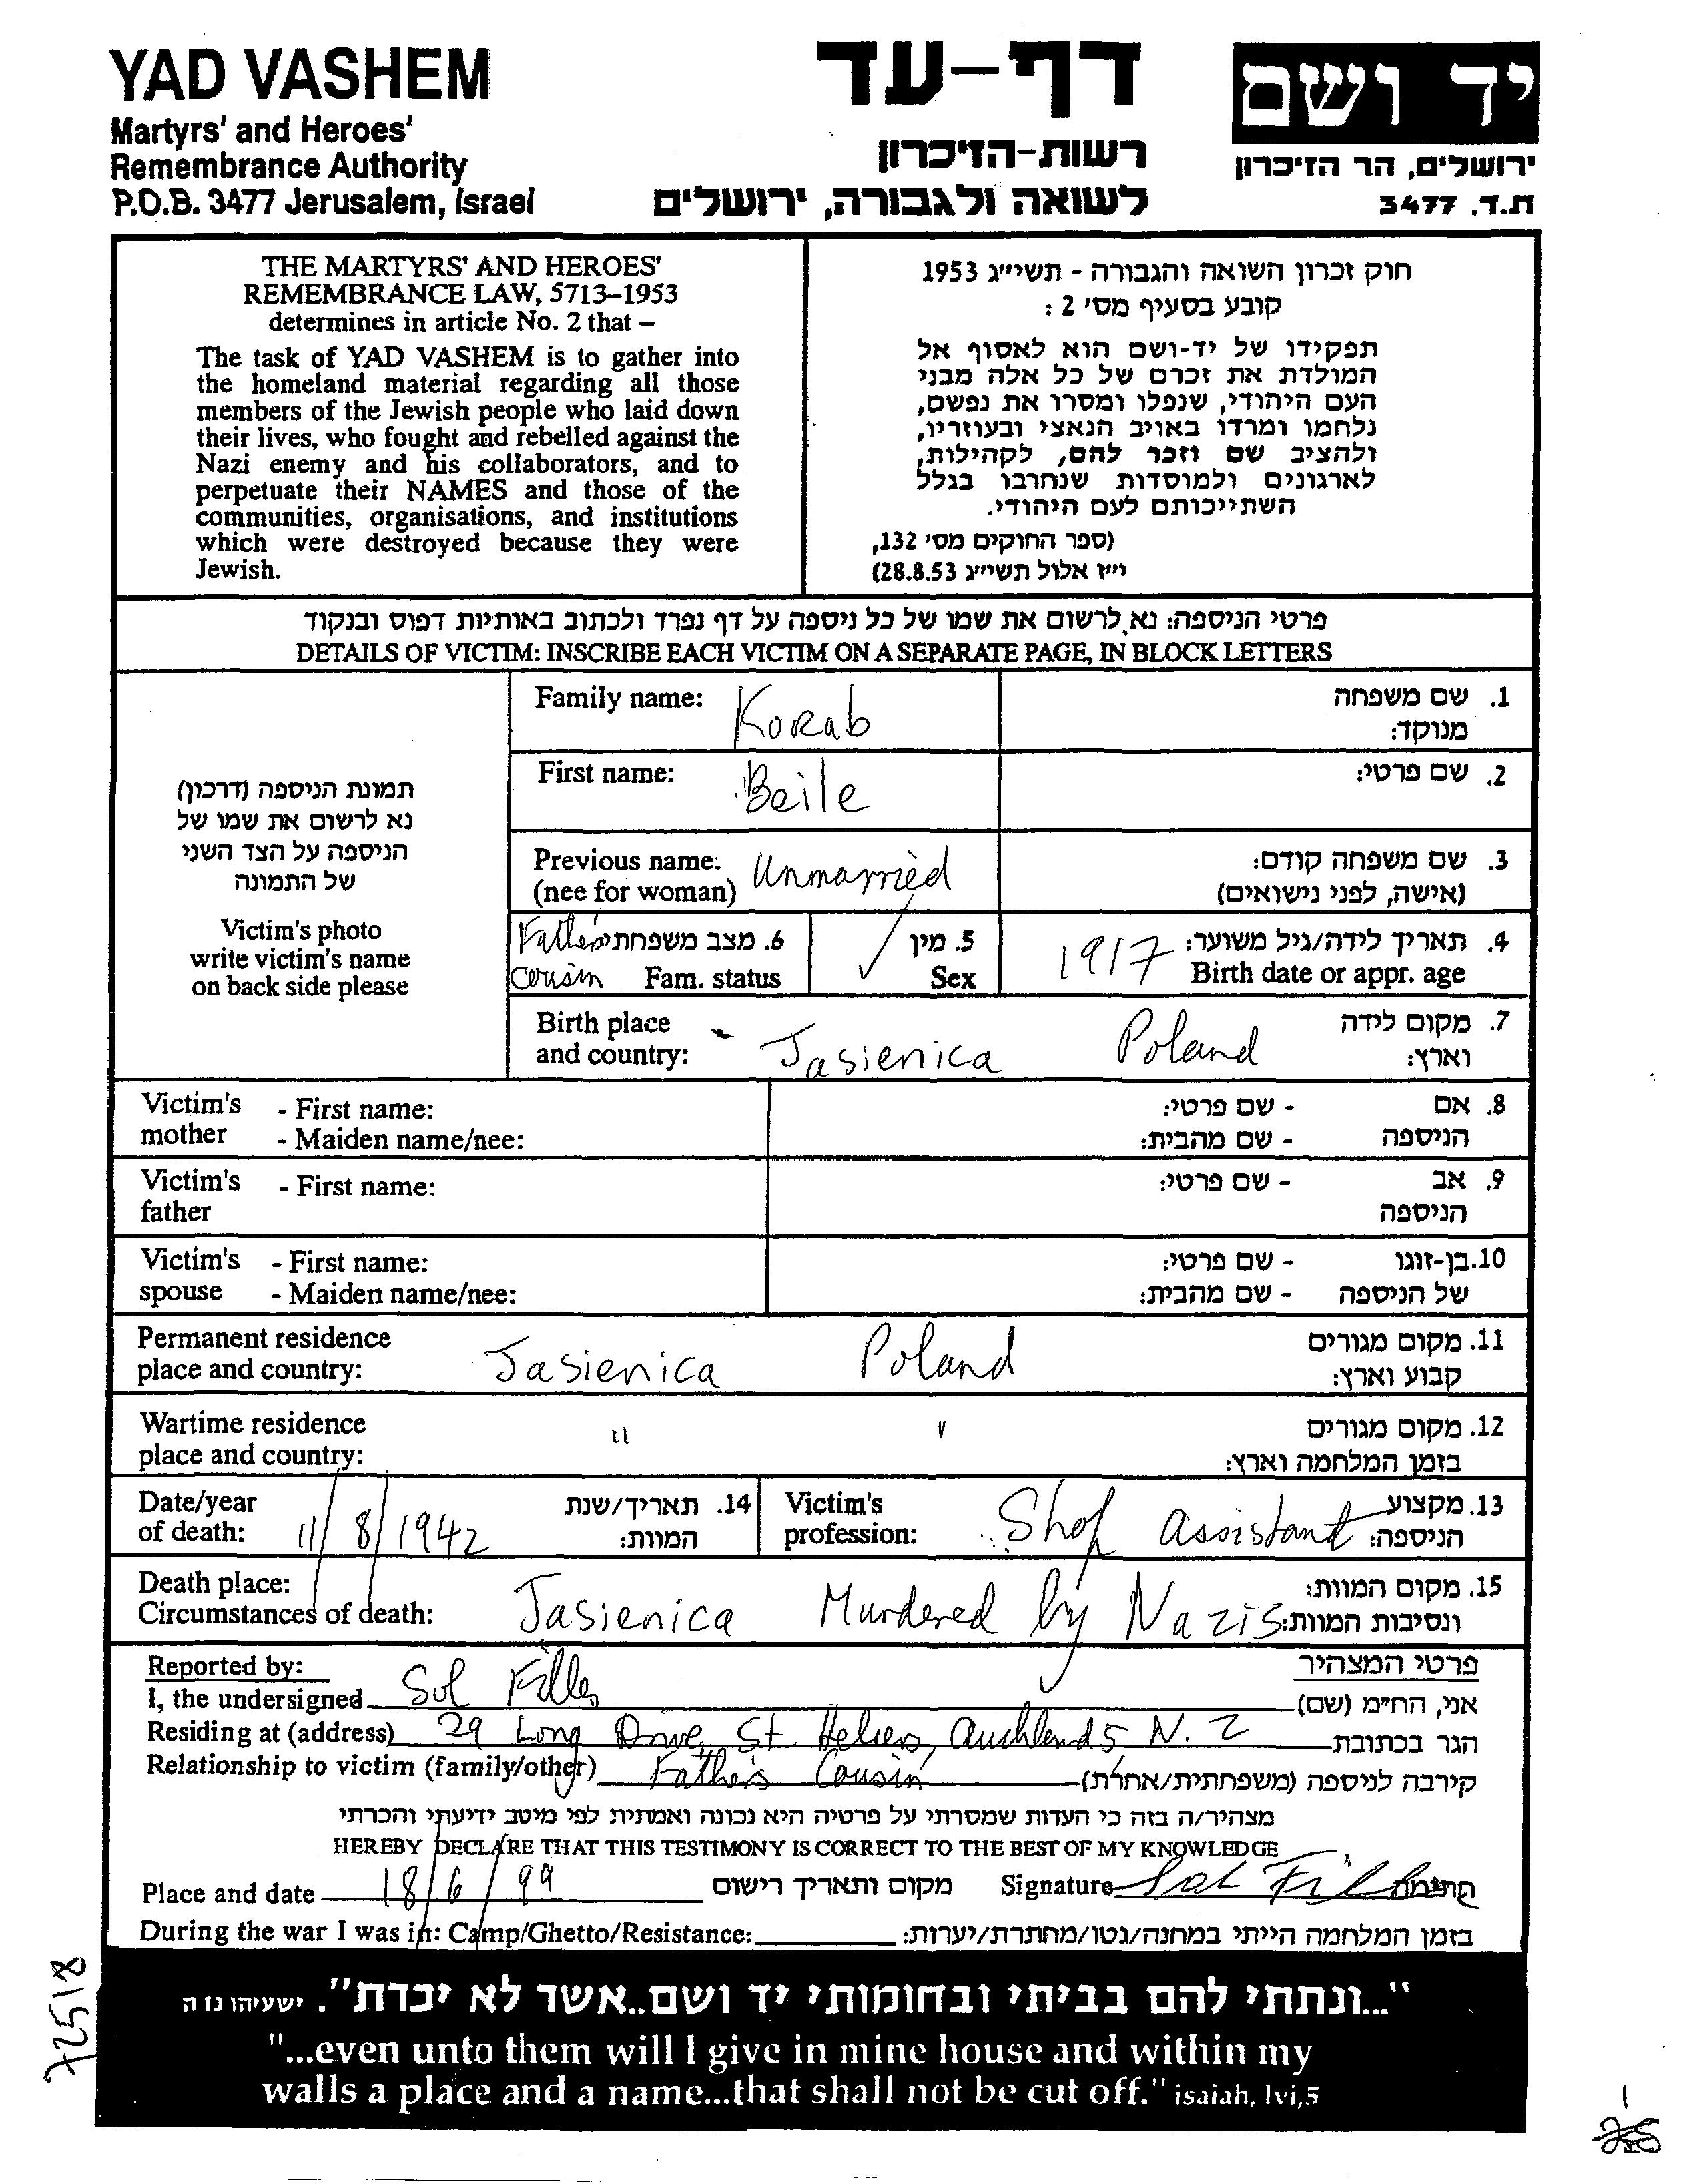 YAD VASHEM
Martyrs' and Heroes'
Remembrance Authority
P.O.B. 3477 Jerusalem, Israel
דף-עד
רשות-הזיכרון
לשואה ולגבורה, ירושלים
יד ושם
ירושלים, הר הזיכרון
ת.ד. 3477
THE MARTYRS' AND HEROES'
REMEMBRANCE LAW, 5713–1953
determines in article No. 2 that –
The task of YAD VASHEM is to gather into
the homeland material regarding all those
members of the Jewish people who laid down
their lives, who fought and rebelled against the
Nazi enemy and his collaborators, and to
perpetuate their NAMES and those of the
communities, organisations, and institutions
which were destroyed because they were
Jewish.
חוק זכרון השואה והגבורה - תשי״ג 1953
קובע בסעיף מס' 2 :
תפקידו של יד-ושם הוא לאסוף אל
המולדת את זכרם של כל אלה מבני
העם היהודי, שנפלו ומסרו את נפשם,
נלחמו ומרדו באויב הנאצי ובעוזריו,
ולהציב שם וזכר להם, לקהילות,
לארגונים ולמוסדות שנחרבו בגלל
השתייכותם לעם היהודי.
(ספר החוקים מס' 132,
י״ז אלול תשי״ג 28.8.53)
פרטי הניספה: נא לרשום את שמו של כל ניספה על דף נפרד ולכתוב באותיות דפוס ובנקוד
DETAILS OF VICTIM: INSCRIBE EACH VICTIM ON A SEPARATE PAGE, IN BLOCK LETTERS
תמונת הניספה (דרכון)
נא לרשום את שמו של
הניספה על הצד השני
של התמונה
Victim's photo
write victim's name
on back side please
Family name: Korab 1. שם משפחה
מנוקד:
First name: Beile 2. שם פרטי:
Previous name: Unmarried 3. שם משפחה קודם:
(nee for woman) (אישה, לפני נישואים)
Father's 6. מצב משפחתי 5. מין 1917 4. תאריך לידה/גיל משוער:
Cousin Fam. status ✓ Sex Birth date or appr. age
Birth place 7. מקום לידה
and country: Jasienica Poland וארץ:
Victim's - First name: - שם פרטי: 8. אם
mother - Maiden name/nee: - שם מהבית: הניספה
Victim's - First name: - שם פרטי: 9. אב
father הניספה
Victim's - First name: - שם פרטי: 10.בן-זוגו
spouse - Maiden name/nee: - שם מהבית: של הניספה
Permanent residence 11. מקום מגורים
place and country: Jasienica Poland קבוע וארץ:
Wartime residence " " 12. מקום מגורים
place and country: בזמן המלחמה וארץ:
Date/year 14. תאריך/שנת Victim's 13. מקצוע
of death: 11/8/1942 המוות: profession: Shop assistant הניספה:
Death place: 15. מקום המוות:
Circumstances of death: Jasienica Murdered by Nazis ונסיבות המוות:
Reported by: פרטי המצהיר
I, the undersigned Sol Filler אני, הח״מ (שם)
Residing at (address) 29 Long Drive, St. Heliers, Auckland 5, N. Z הגר בכתובת
Relationship to victim (family/other) Father's Cousin קירבה לניספה (משפחתית/אחרת)
מצהיר/ה בזה כי העדות שמסרתי על פרטיה היא נכונה ואמתית לפי מיטב ידיעתי והכרתי
HEREBY DECLARE THAT THIS TESTIMONY IS CORRECT TO THE BEST OF MY KNOWLEDGE
Place and date 18/6/99 מקום ותאריך רישום Signature Sol Filler חתימה
During the war I was in: Camp/Ghetto/Resistance: בזמן המלחמה הייתי במחנה/גטו/מחתרת/יערות:
"...ונתתי להם בביתי ובחומותי יד ושם..אשר לא יכרת". ישעיהו נז ה
"...even unto them will I give in mine house and within my
walls a place and a name...that shall not be cut off." isaiah, lvi,5